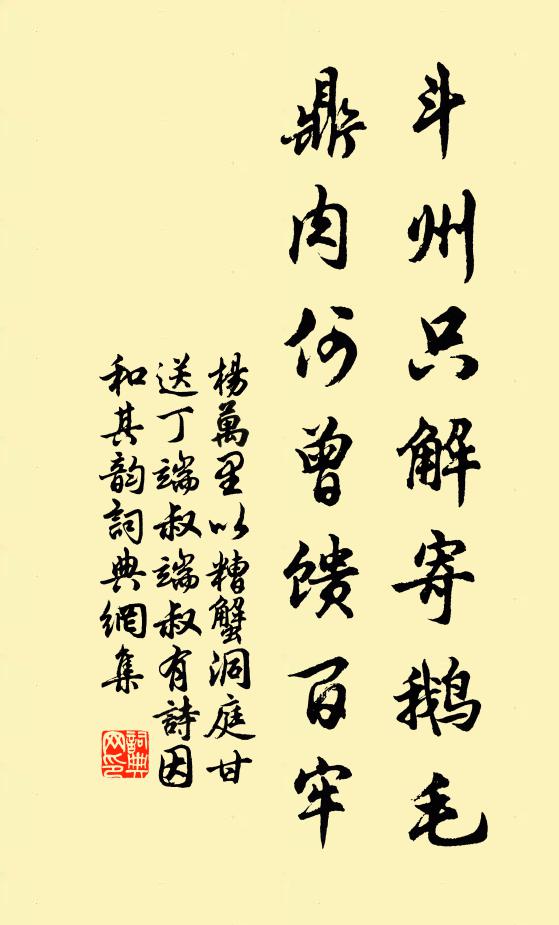 斗州只解寄鹅毛
鼎肉何曾馈百牢
楊萬里以糟蟹洞庭甘
送丁端叔端叔有詩因
和其韵詞典網集
詞典网印